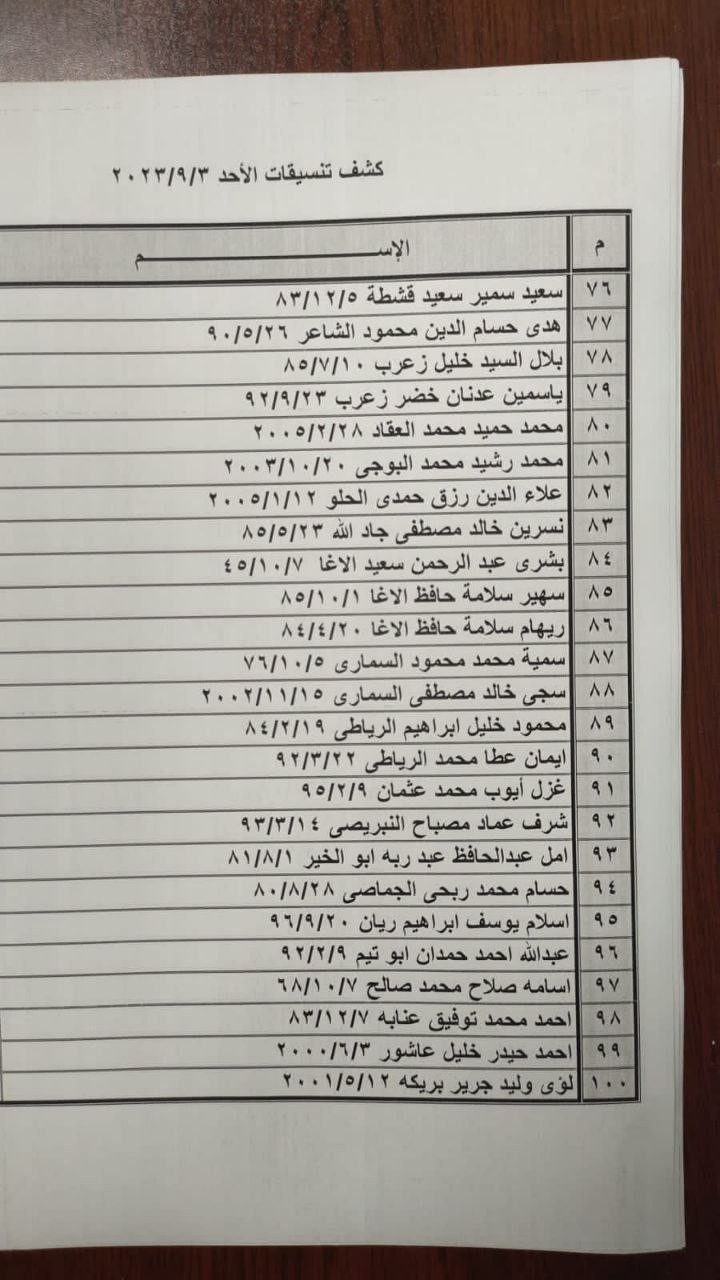 كشف تنسيقات الأحد ٢٠٢٣/٩/٣
م الإســـــــــــــــــم
٧٦ سعيد سمير سعيد قشطة ٨٣/١٢/٥
٧٧ هدى حسام الدين محمود الشاعر ٩٠/٥/٢٦
٧٨ بلال السيد خليل زعرب ٨٥/٧/١٠
٧٩ ياسمين عدنان خضر زعرب ٩٢/٩/٢٣
٨٠ محمد حميد محمد العقاد ٢٠٠٥/٢/٢٨
٨١ محمد رشيد محمد البوجى ٢٠٠٣/١٠/٢٠
٨٢ علاء الدين رزق حمدى الحلو ٢٠٠٥/١/١٢
٨٣ نسرين خالد مصطفى جاد الله ٨٥/٥/٢٣
٨٤ بشرى عبد الرحمن سعيد الاغا ٤٥/١٠/٧
٨٥ سهير سلامة حافظ الاغا ٨٥/١٠/١
٨٦ ريهام سلامة حافظ الاغا ٨٤/٤/٢٠
٨٧ سمية محمد محمود السمارى ٧٦/١٠/٥
٨٨ سجى خالد مصطفى السمارى ٢٠٠٢/١١/١٥
٨٩ محمود خليل ابراهيم الرياطى ٨٤/٢/١٩
٩٠ ايمان عطا محمد الرياطى ٩٢/٣/٢٢
٩١ غزل أيوب محمد عثمان ٩٥/٢/٩
٩٢ شرف عماد مصباح النبريصى ٩٣/٣/١٤
٩٣ امل عبدالحافظ عبد ربه ابو الخير ٨١/٨/١
٩٤ حسام محمد ربحى الجماصى ٨٠/٨/٢٨
٩٥ اسلام يوسف ابراهيم ريان ٩٦/٩/٢٠
٩٦ عبدالله احمد حمدان ابو تيم ٩٢/٢/٩
٩٧ اسامه صلاح محمد صالح ٦٨/١٠/٧
٩٨ احمد محمد توفيق عنابه ٨٣/١٢/٧
٩٩ احمد حيدر خليل عاشور ٢٠٠٠/٦/٣
١٠٠ لؤى وليد جرير بريكه ٢٠٠١/٥/١٢